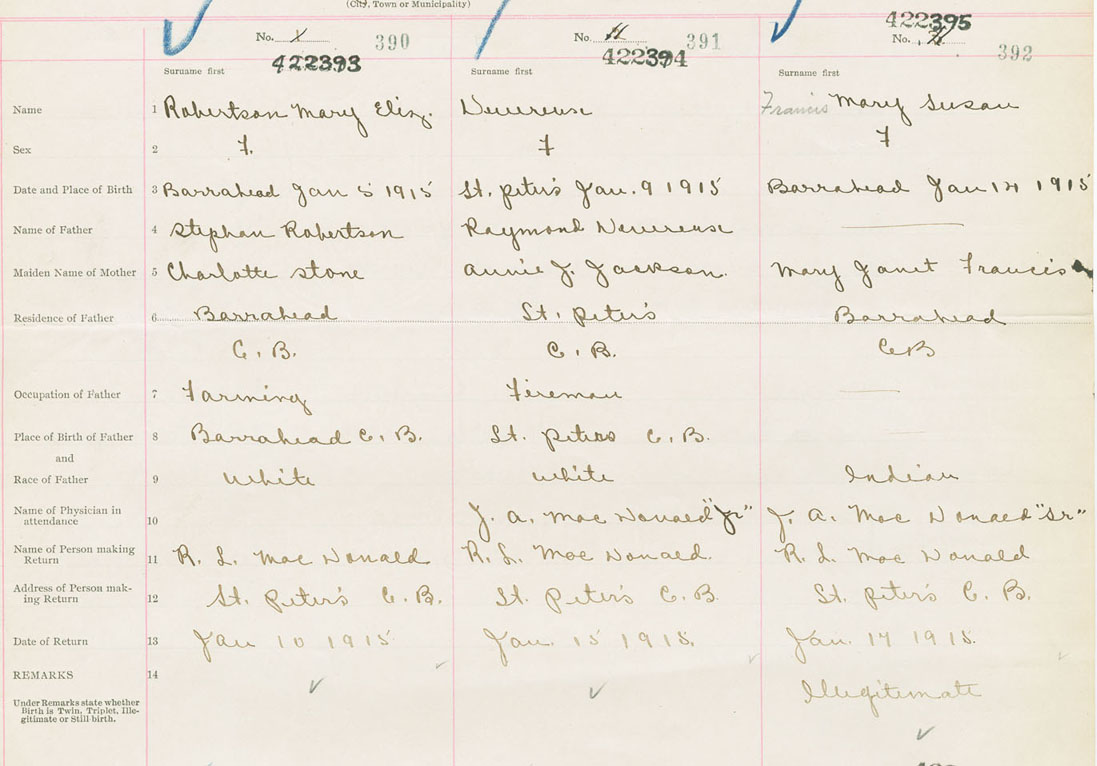 (City, Town or Municipality)
No. 390 No. 391 422395
No. 392
422393 422394
Surname first Surname first Surname first
Name 1 Robertson Mary Eliz. Devereuse Francis Mary Susan
Sex 2 F. F F
Date and Place of Birth 3 Barrahead Jan 5 1915 St. Peter's Jan. 9 1915 Barrahead Jan 1915
Name of Father 4 Stephan Robertson Raymond Devereuse
Maiden Name of Mother 5 Charlotte Stone Annie J. Jackson. Mary Janet Francis
Residence of Father 6 Barrahead St. Peter's Barrahead
C. B. C. B. CB
Occupation of Father 7 Farming Fireman
Place of Birth of Father 8 Barrahead C. B. St. Peters C. B.
and
Race of Father 9 White White Indian
Name of Physician in
attendance 10 J. A. Mac Donald "Jr" J. A. Mac Donald "Sr"
Name of Person making
Return 11 R. L. Mac Donald R. L. Mac Donald. R. L. Mac Donald
Address of Person mak-
ing Return 12 St. Peter's C. B. St. Peter's C. B. St. Peter's C. B.
Date of Return 13 Jan 10 1915 Jan. 15 1915. Jan. 17 1915.
REMARKS 14
Illegitimate
Under Remarks state whether
Birth is Twin, Triplet, Ille-
gitimate or Still-birth.